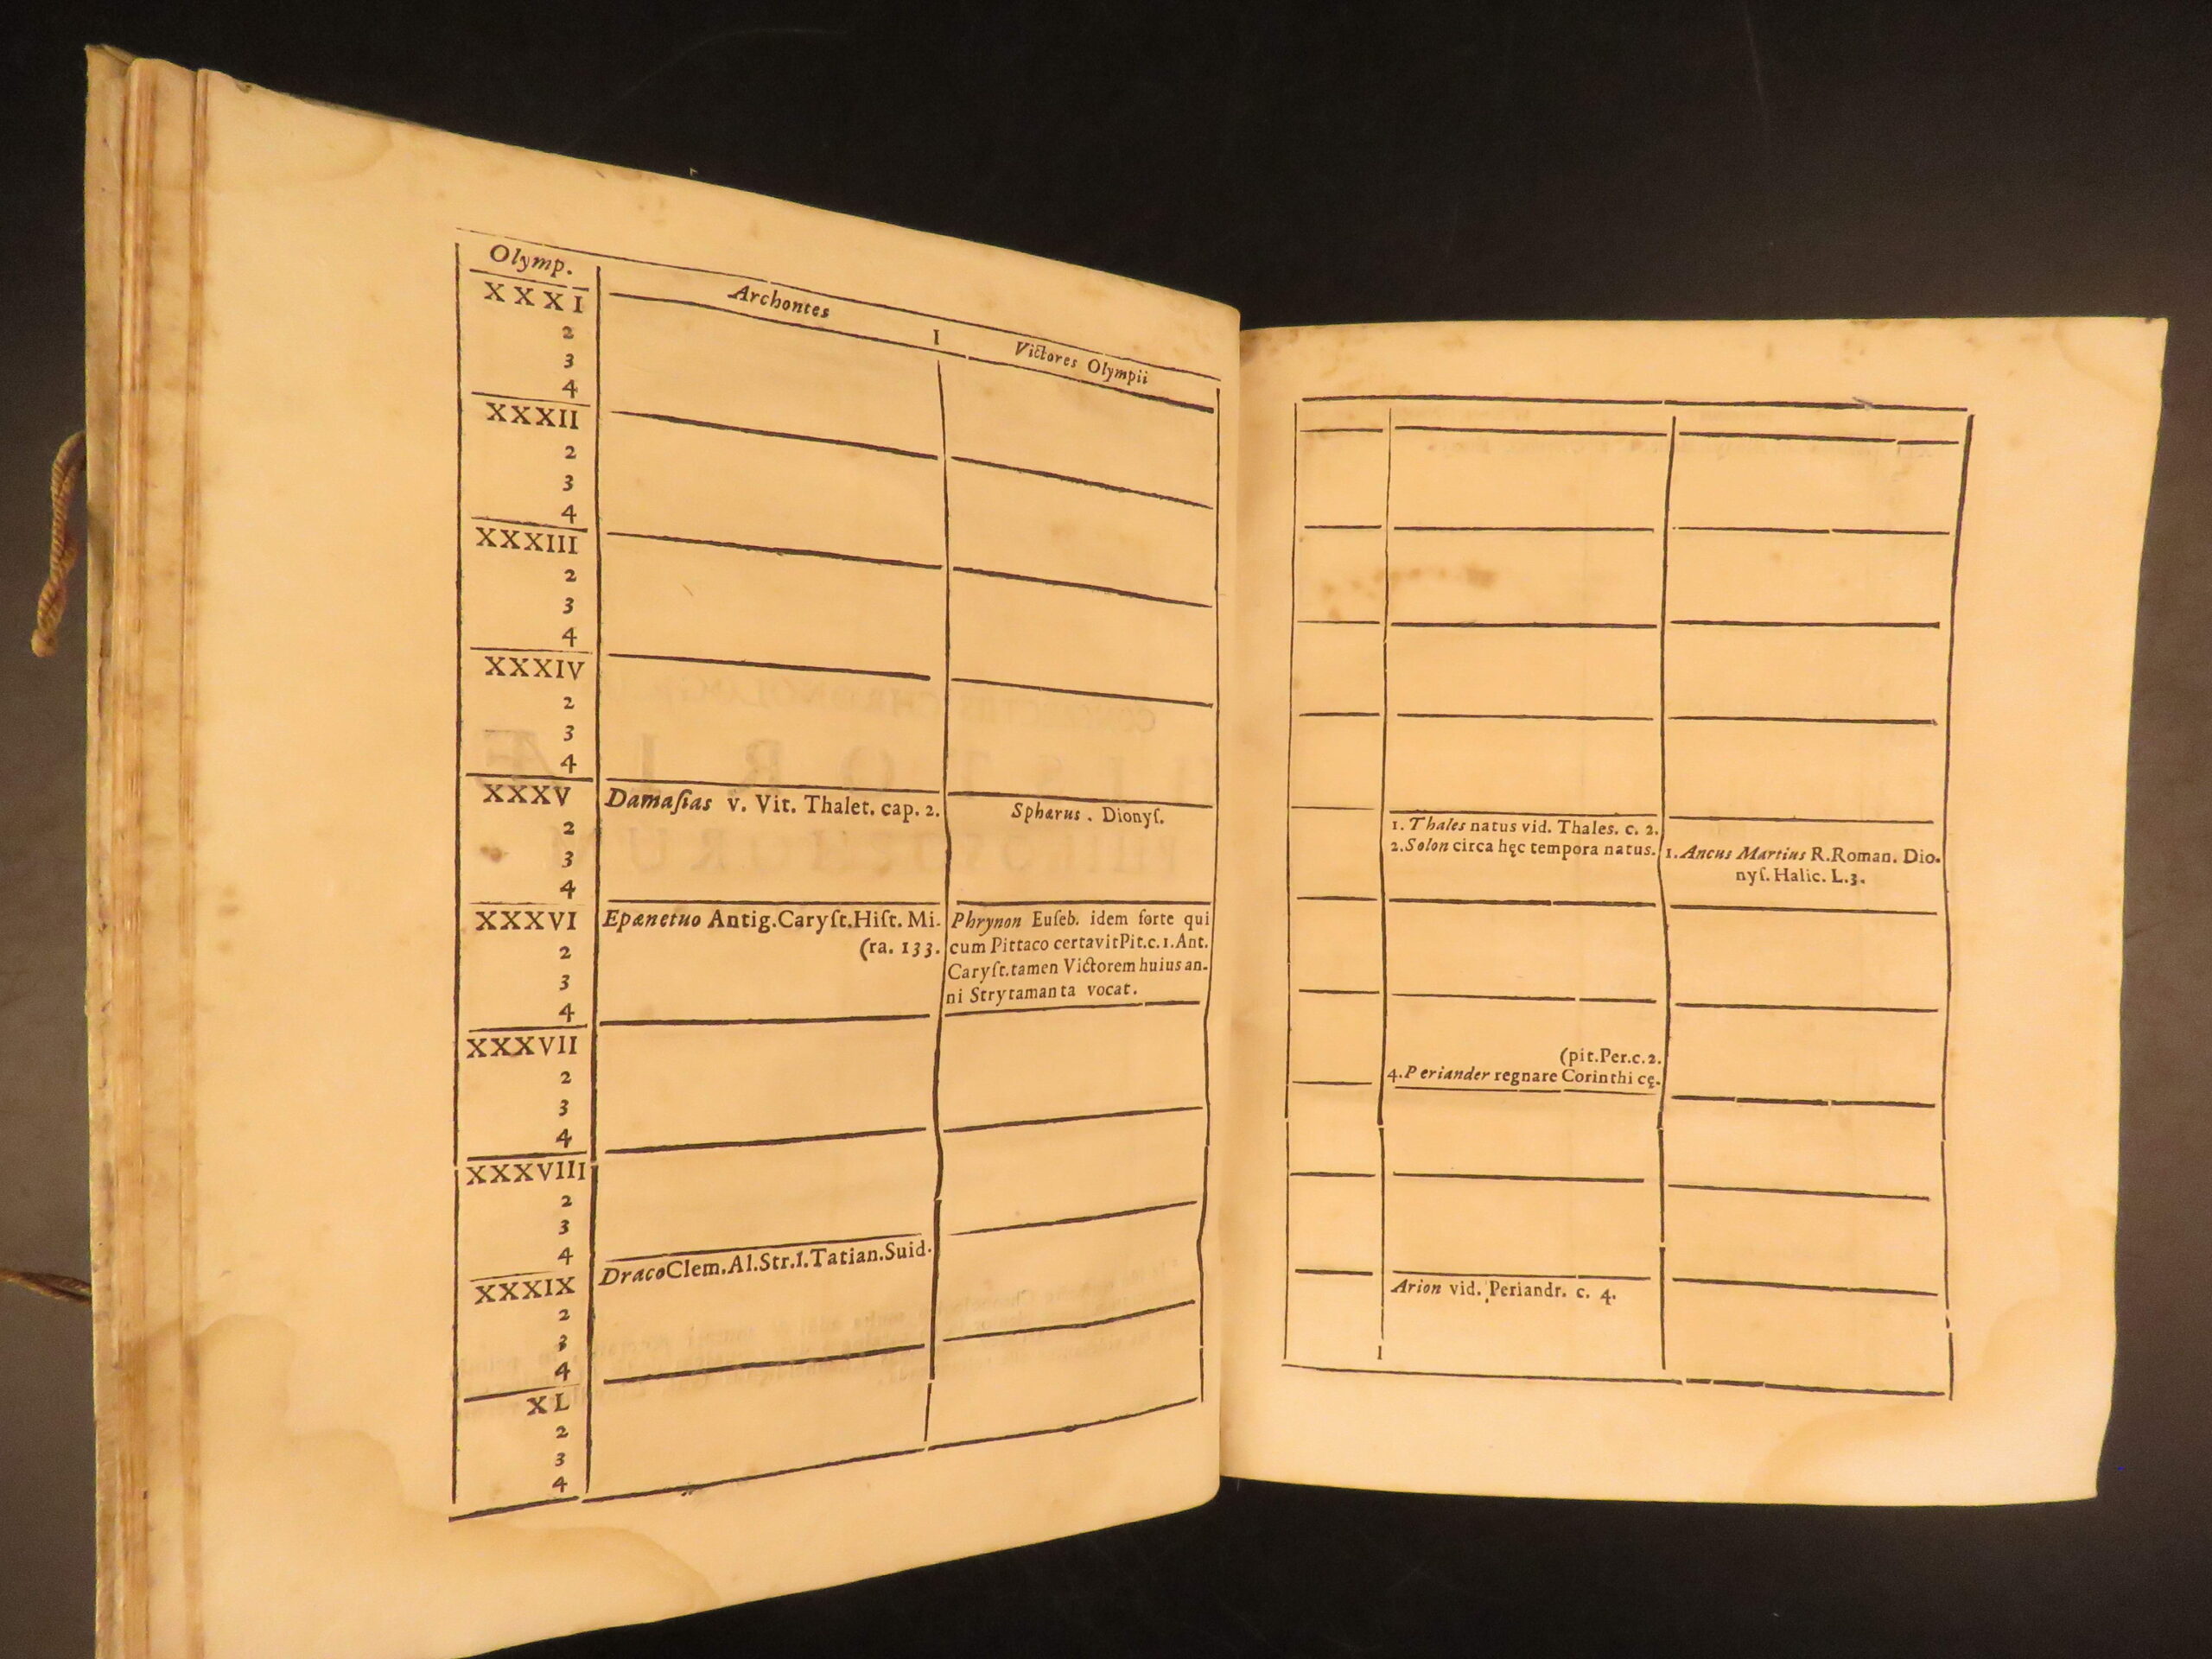 Olymp.
Archontes
I
Victores Olympii
XXXI
2
3
4
XXXII
2
3
4
XXXIII
2
3
4
XXXIV
2
3
4
XXXV
Damaſias v. Vit. Thalet. cap. 2.
Sphærus . Dionyſ.
2
3
4
XXXVI
Epænetuo Antig.Caryſt.Hiſt. Mi.
(ra. 133.
Phrynon Euſeb. idem forte qui
cum Pittaco certavitPit.c.1.Ant.
Caryſt.tamen Victorem huius an-
ni Strytamanta vocat.
2
3
4
XXXVII
2
3
4
XXXVIII
2
3
4
XXXIX
DracoClem.Al.Str.I.Tatian.Suid.
2
3
4
XL
2
3
4
1. Thales natus vid. Thales. c. 2.
2.Solon circa hęc tempora natus.
1.Ancus Martius R.Roman. Dio-
nyſ. Halic. L.3.
(pit.Per.c.2.
4.Periander regnare Corinthi cę-
Arion vid. Periandr. c. 4.
I